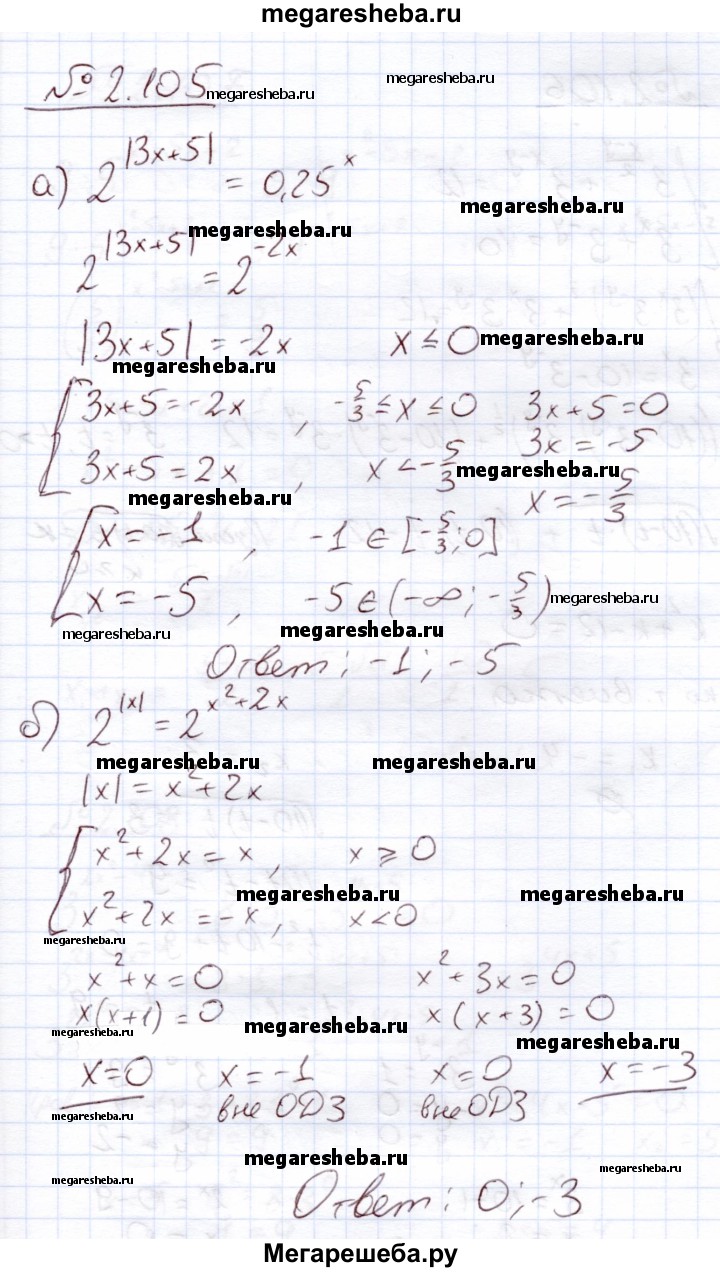 megaresheba.ru
№ 2.105 megaresheba.ru megaresheba.ru
а) 2^|3x+5| = 0,25^x
megaresheba.ru
megaresheba.ru
2^|3x+5| = 2^-2x
|3x+5| = -2x x ≤ 0 megaresheba.ru
megaresheba.ru
[ 3x+5 = -2x , -5/3 ≤ x ≤ 0 3x+5=0
3x = -5
3x+5 = 2x , x < -5/3 megaresheba.ru
megaresheba.ru x = -5/3
[ x = -1 , -1 ∈ [-5/3; 0]
x = -5 , -5 ∈ (-∞; -5/3) megaresheba.ru
megaresheba.ru megaresheba.ru
Ответ: -1; -5
б) 2^|x| = 2^x²+2x
megaresheba.ru megaresheba.ru
|x| = x²+2x
[ x²+2x = x, x ≥ 0
megaresheba.ru megaresheba.ru
x²+2x = -x, x < 0
megaresheba.ru
x²+x = 0 x²+3x = 0
x(x+1) = 0 x(x+3) = 0
megaresheba.ru megaresheba.ru megaresheba.ru
x=0 x = -1 x = 0 x = -3
вне ОДЗ вне ОДЗ
megaresheba.ru
megaresheba.ru megaresheba.ru
megaresheba.ru
Ответ: 0; -3
Мегарешеба.ру